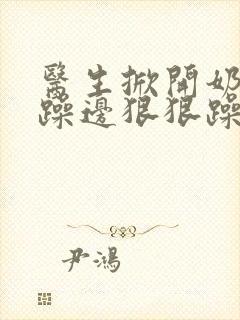 醫生掀開奶
躁邊狠狠躁
尹鴻